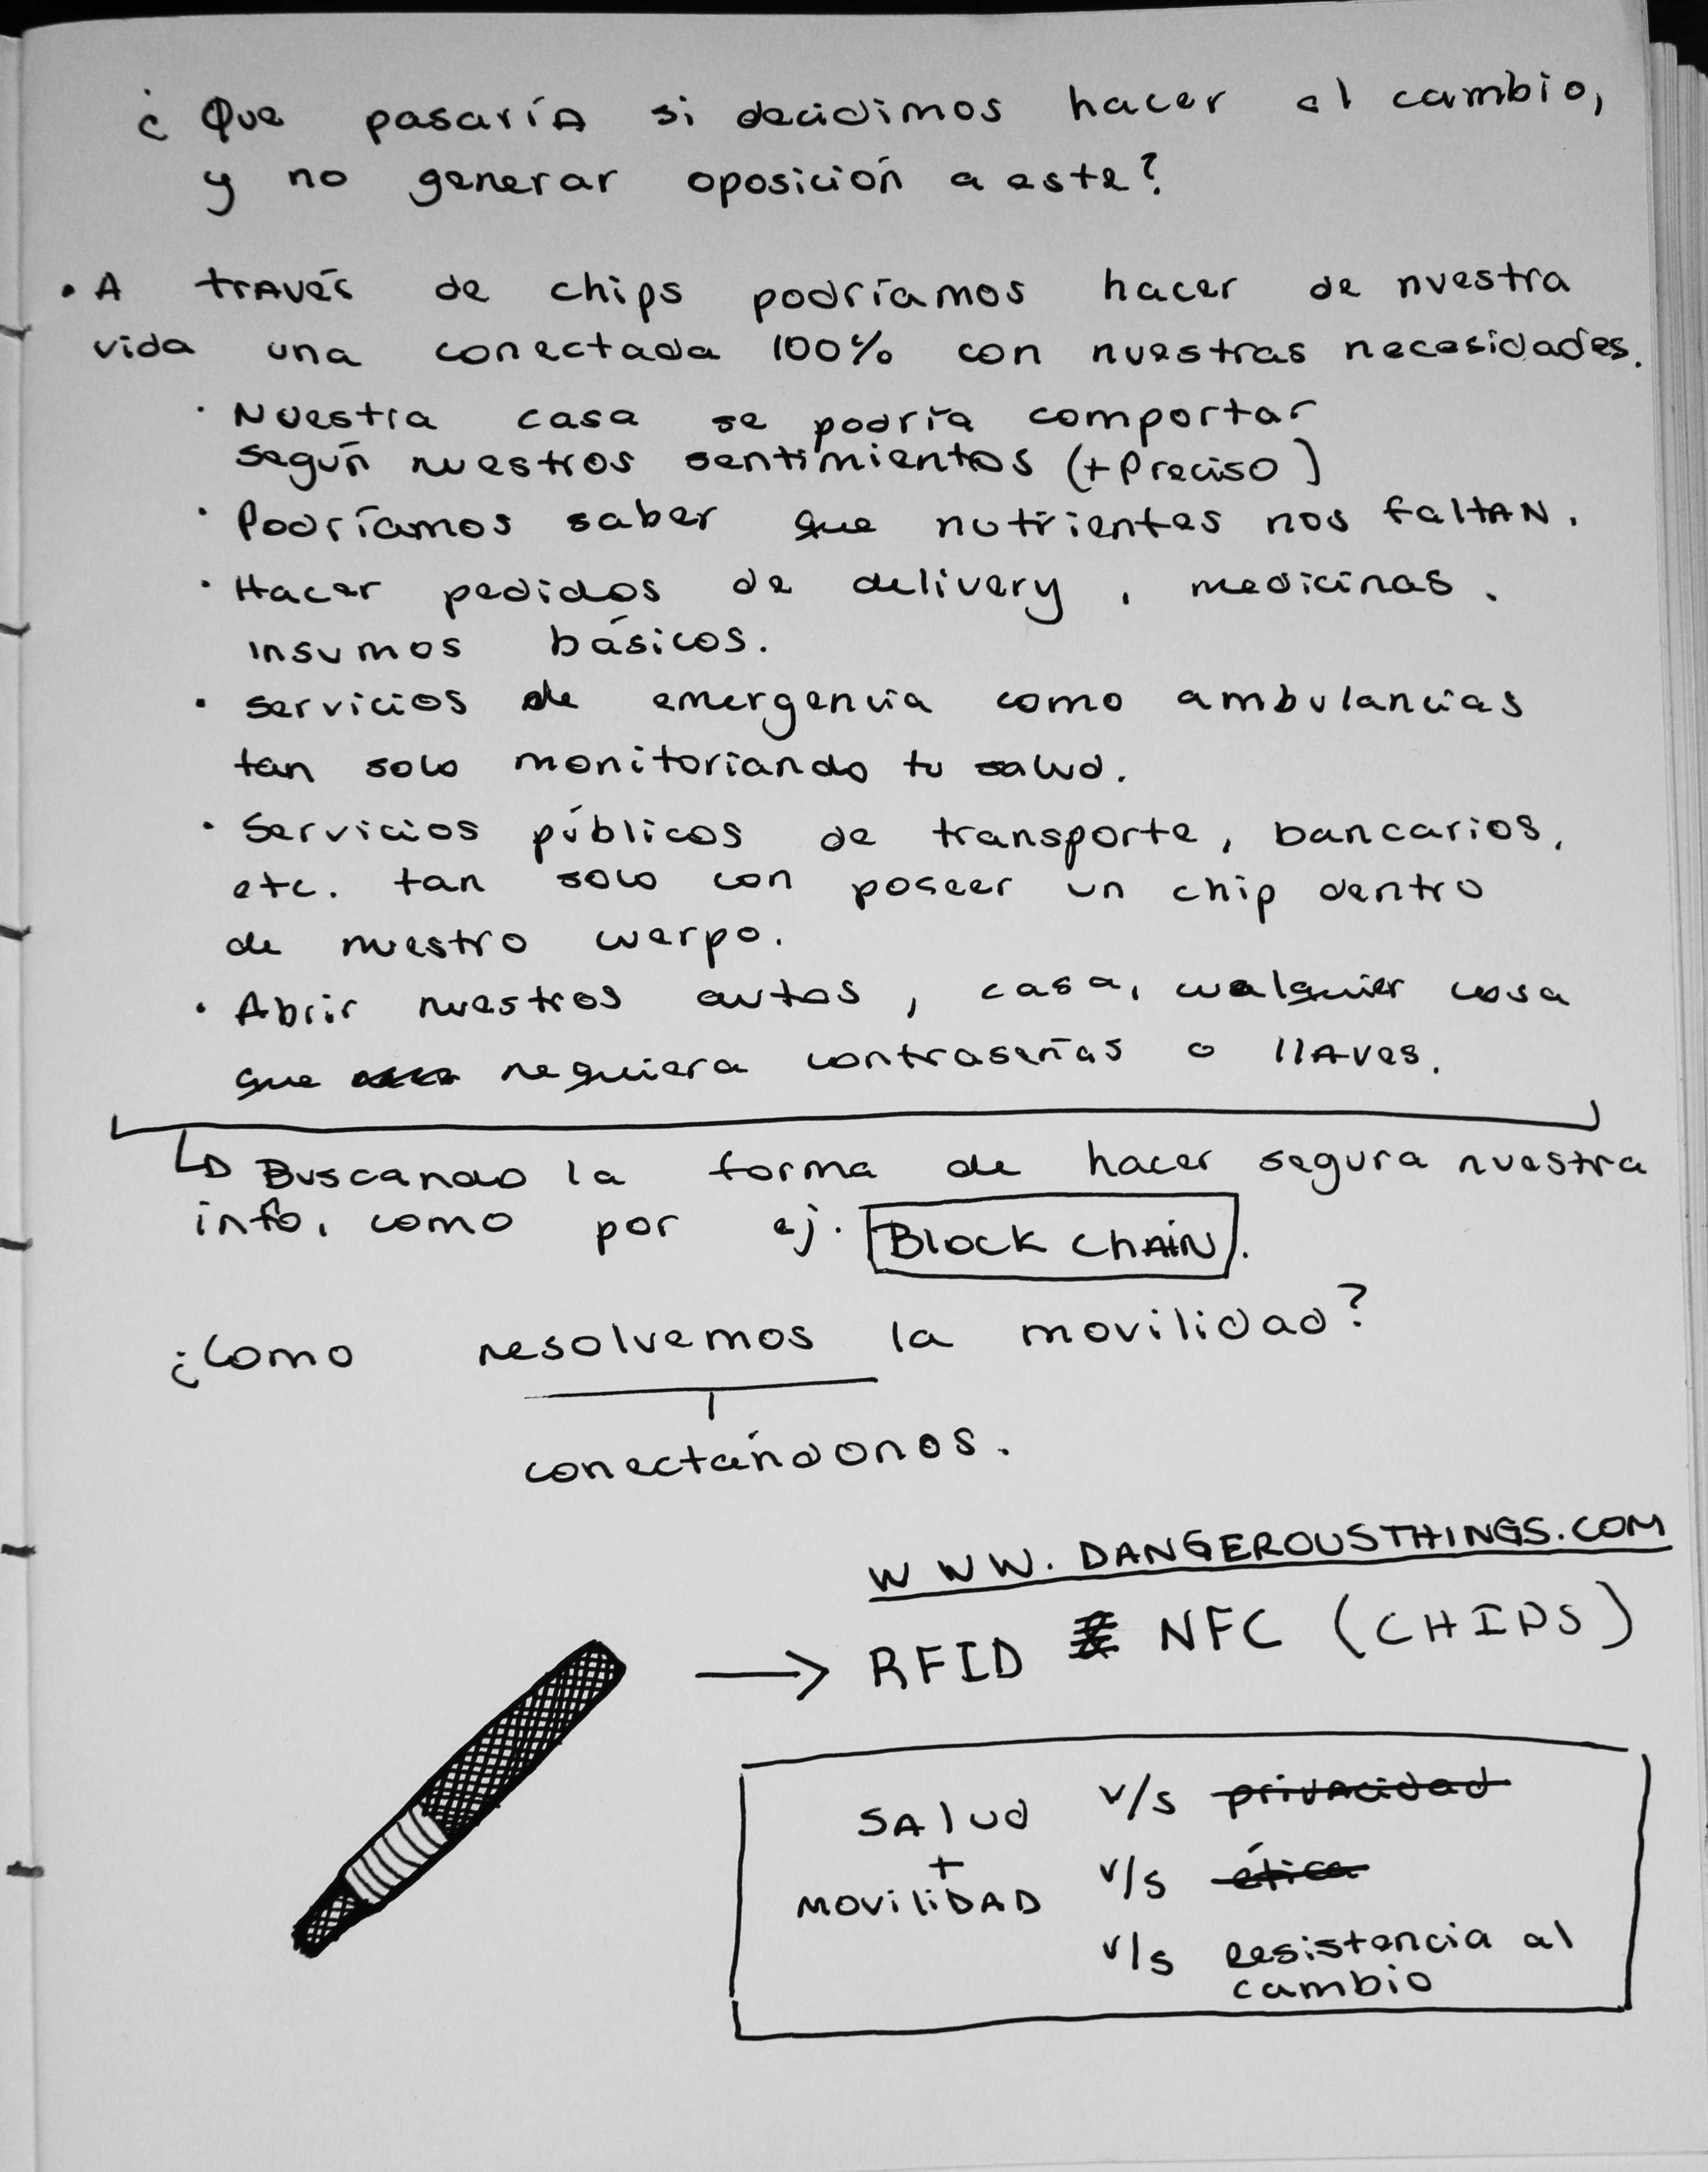 ¿Que pasaría si decidimos hacer el cambio,
y no generar oposición a este?
• A través de chips podríamos hacer de nuestra
vida una conectada 100% con nuestras necesidades.
· Nuestra casa se podría comportar
según nuestros sentimientos (+ Preciso)
· Podríamos saber que nutrientes nos faltAN.
· Hacer pedidos de delivery, medicinas.
insumos básicos.
· servicios de emergencia como ambulancias
tan solo monitoriando tu salud.
· Servicios públicos de transporte, bancarios,
etc. tan solo con poseer un chip dentro
de nuestro cuerpo.
· Abrir nuestros autos, casa, cualquier cosa
que requiera contraseñas o llaves.
↳ Buscando la forma de hacer segura nuestra
info, como por ej. Block chAIN.
¿Como resolvemos la movilidad?
conectándonos.
WWW.DANGEROUSTHINGS.COM
→ RFID NFC (CHIPS)
SAlud v/s privacidad
+
MOVILIDAD v/s ética
v/s Resistencia al
cambio